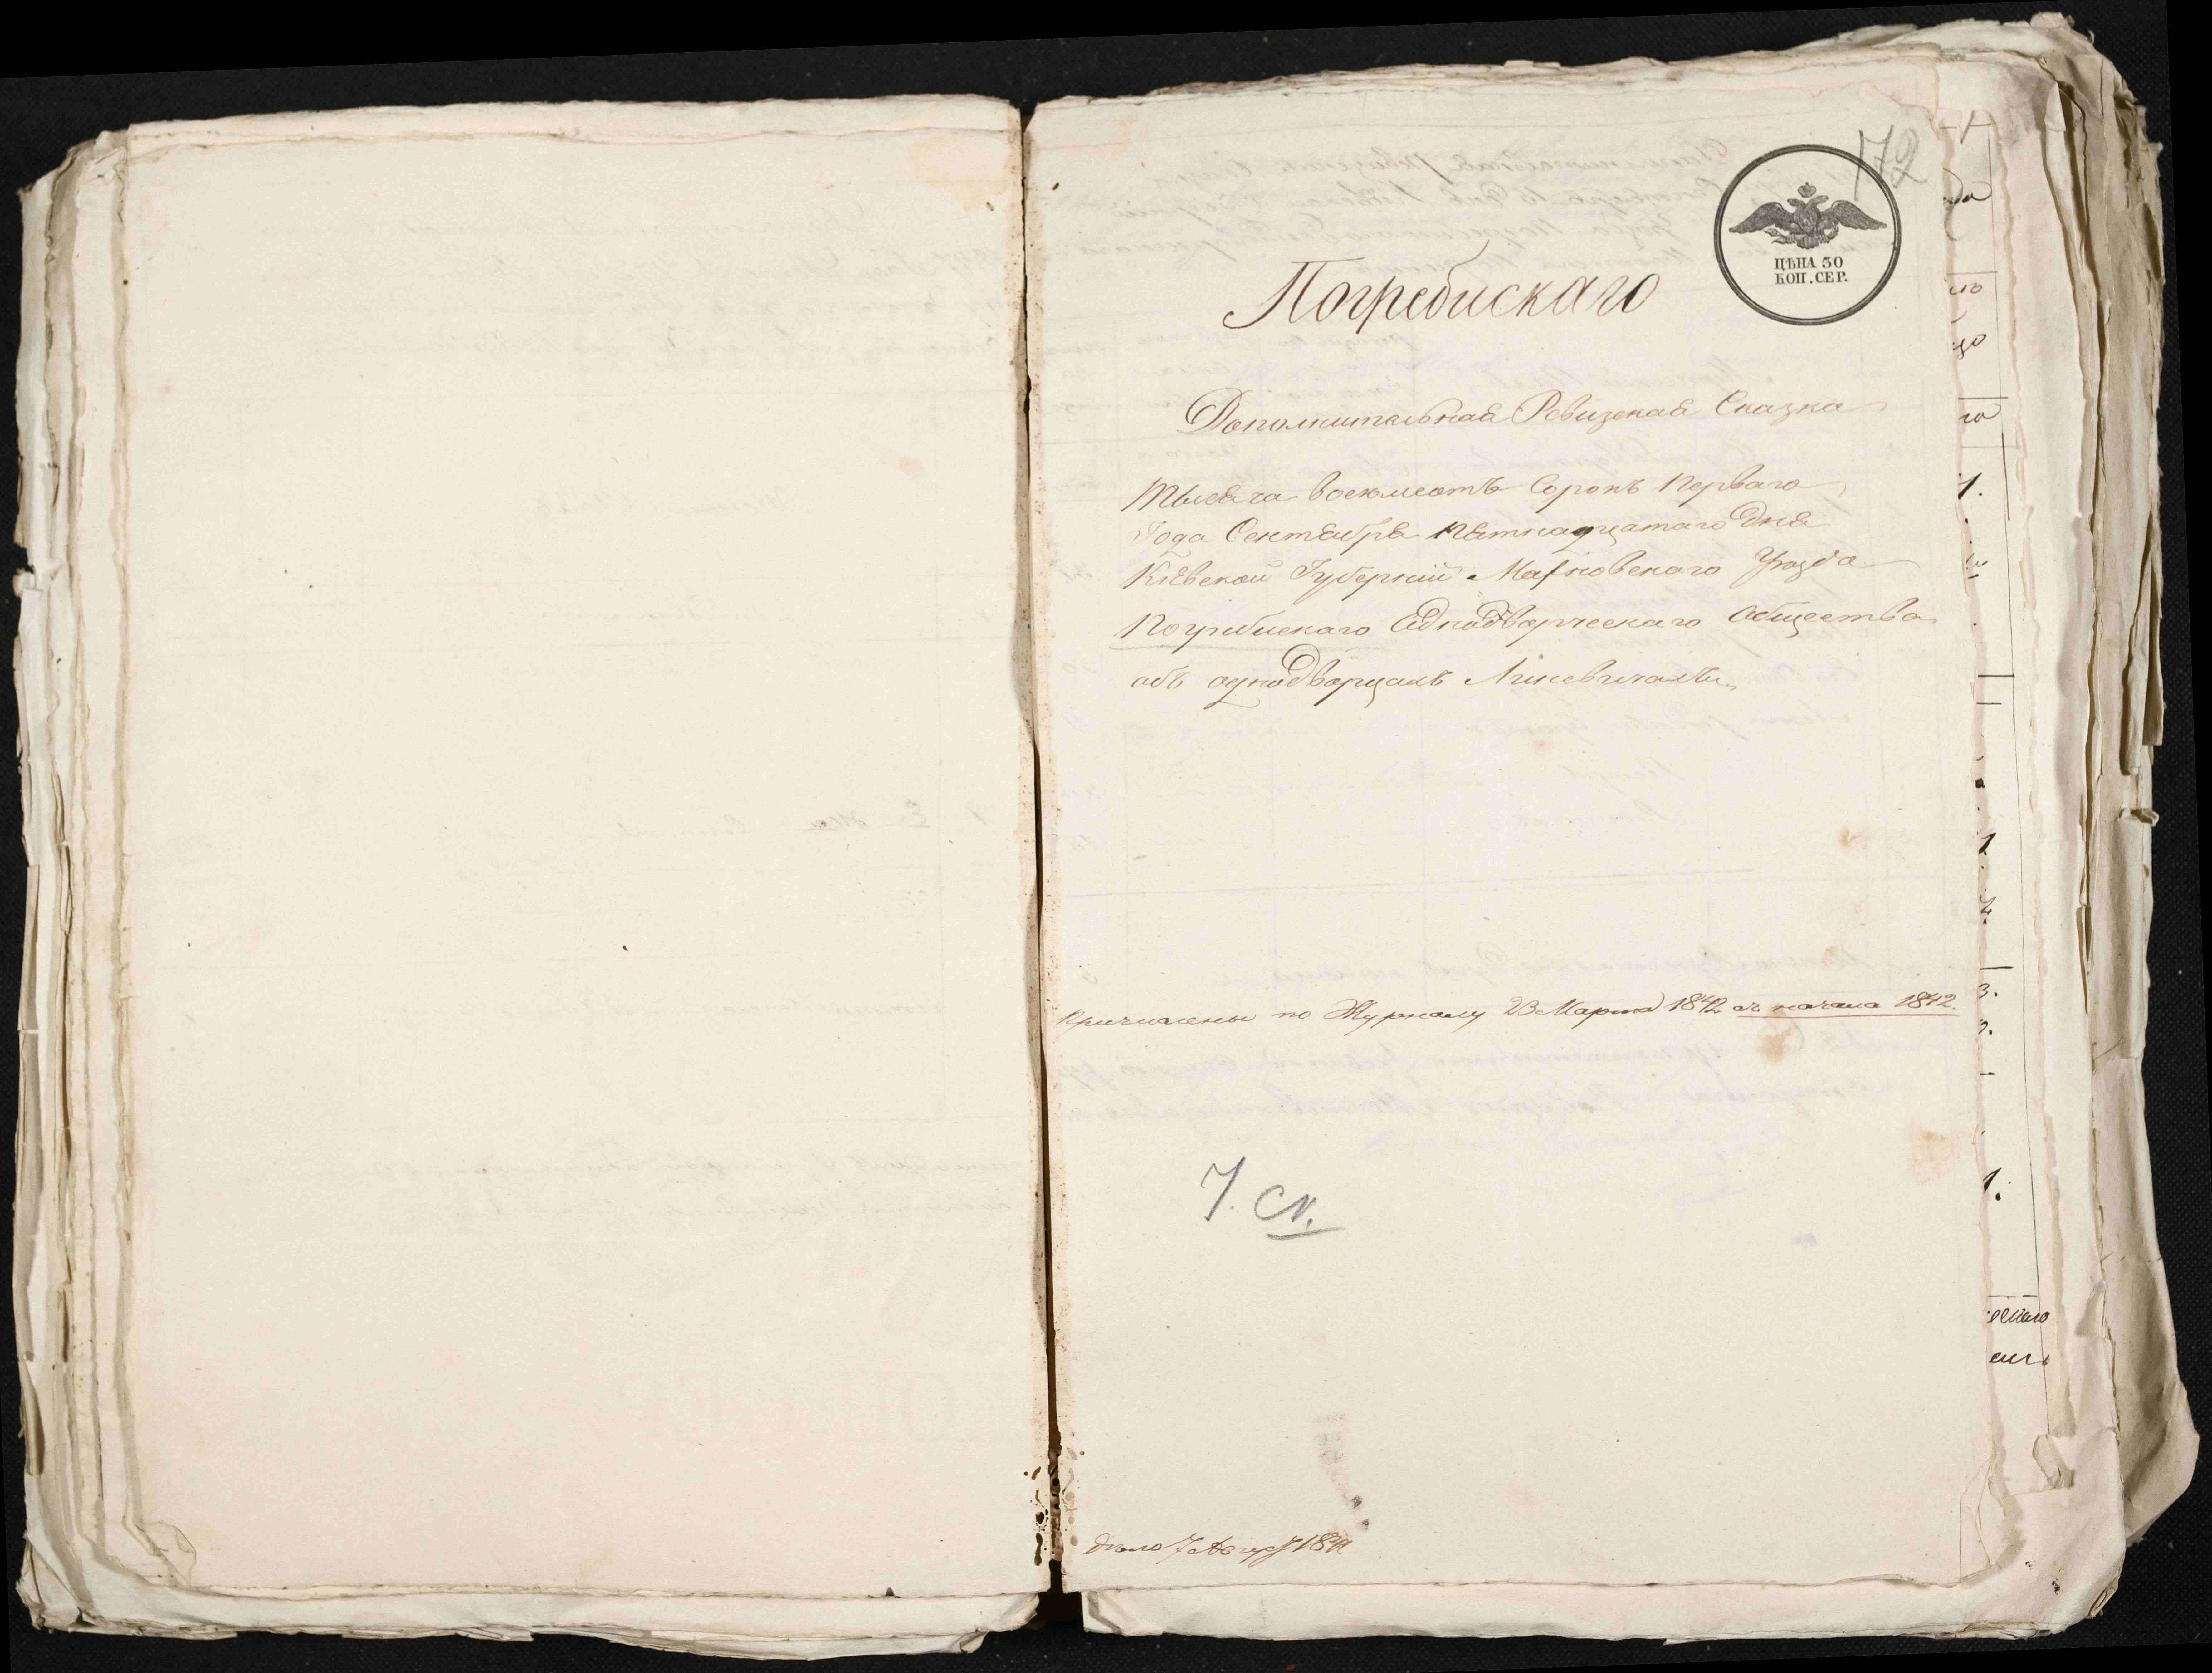 172
ЦѢНА 30
КОП. СЕР.
Погребискаго
Дополнительная Ревизская Сказка
Тысяча восемьсотъ Сорокъ Перваго
Года Сентября пятнадцатаго Дня
Кіевской Губерніи Махновскаго Уѣзда
Погребискаго Однодворческаго Общества
объ однодворцахъ Линевичахъ
Причислены по Журналу 23 Марта 1842 съ начала 1842.
Дѣло 7 1841